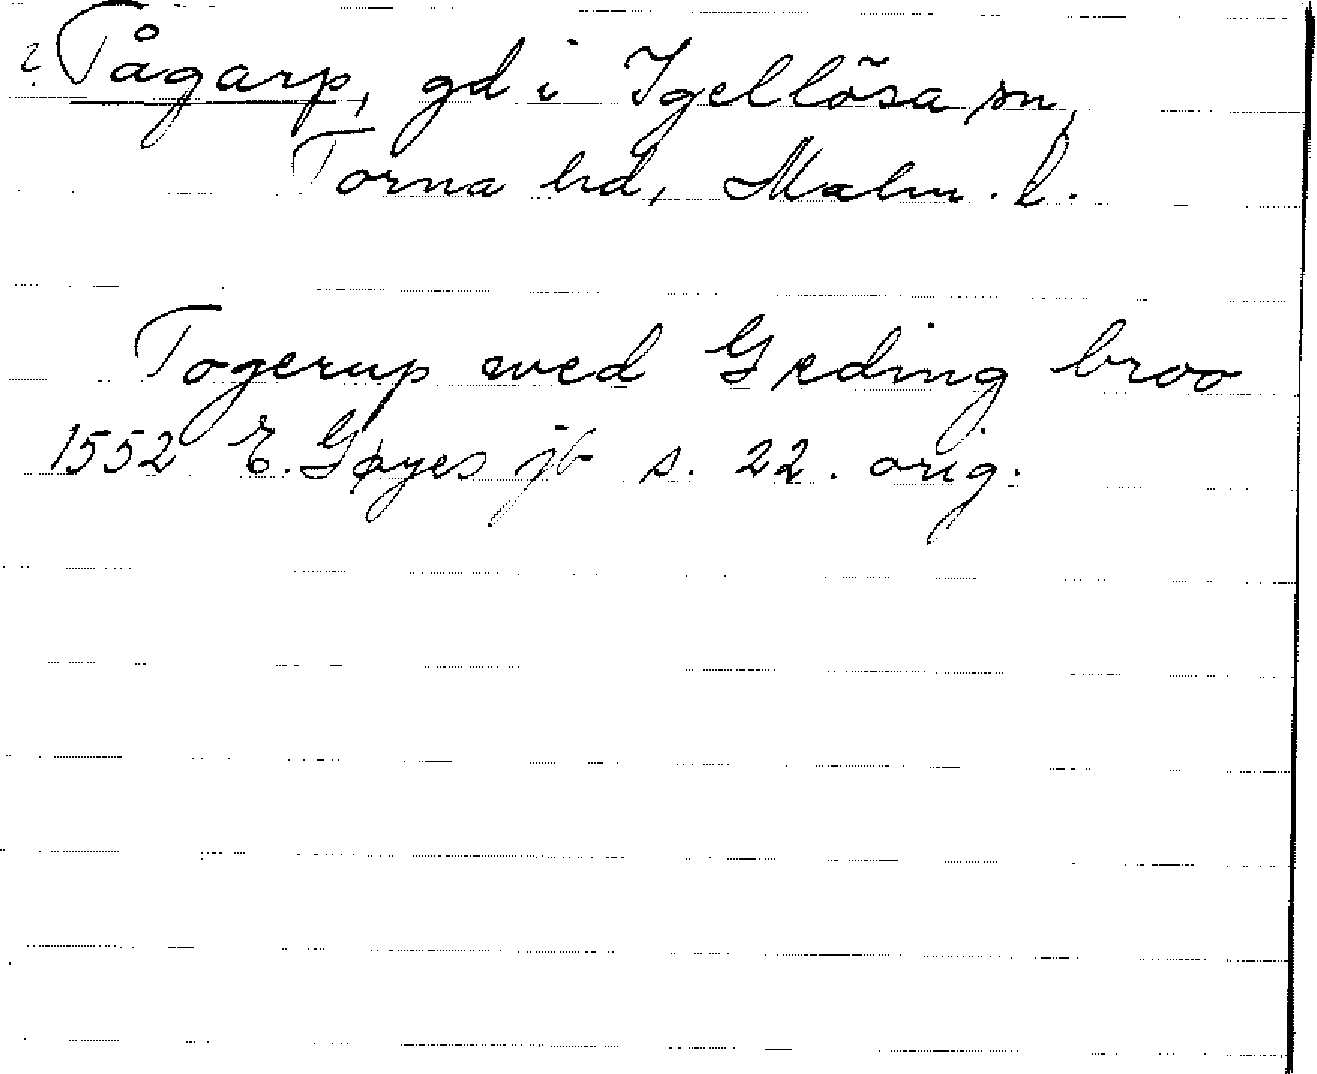 ? Tågarp, gd i Igellösa sn,
Torna hd, Malm. l.
Togerup wed Geding broo
1552 E. Gøyes jb s. 22. orig.